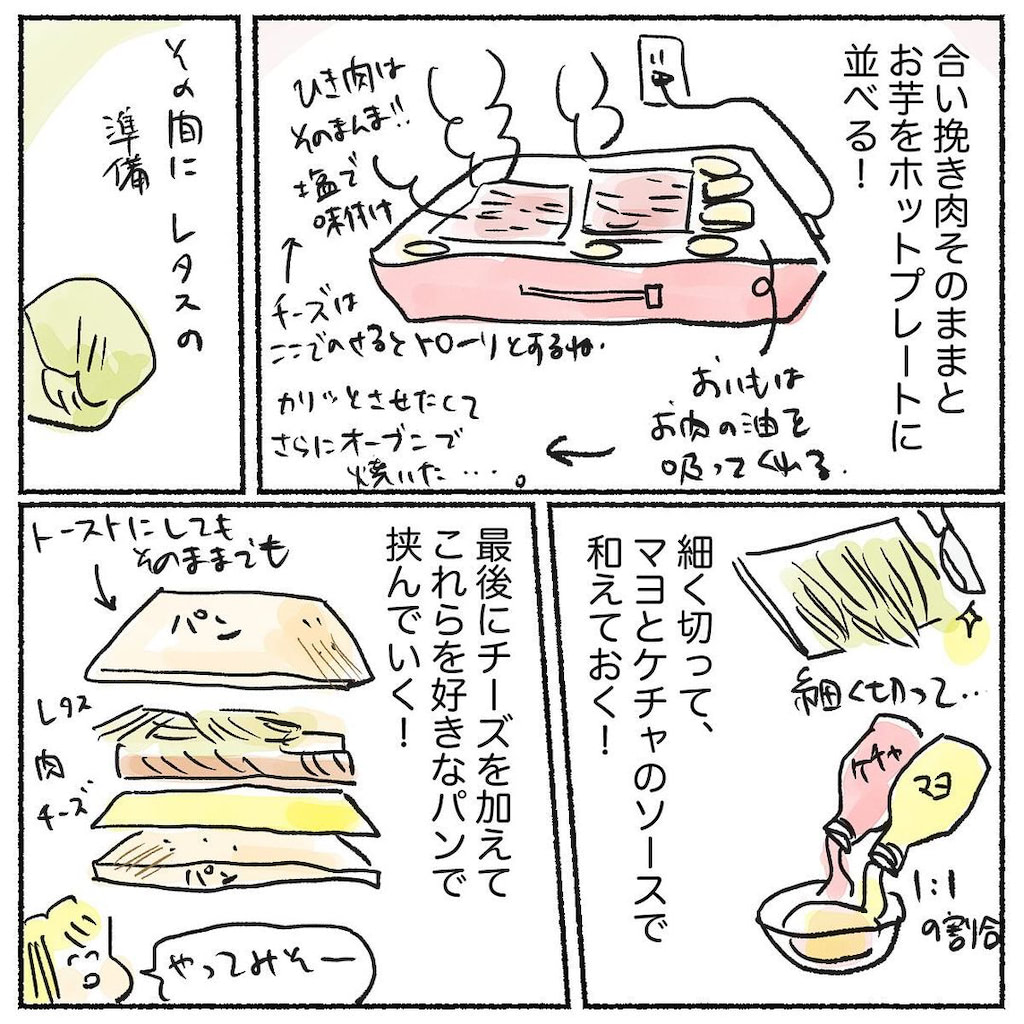 合い挽き肉そのままと
お芋をホットプレートに
並べる！
ひき肉は
そのまんま!!
塩で
味付け
チーズは
ここでのせるとトローリとするね.
おいもは
お肉の油を
吸ってくれる.
カリッとさせたくて
さらにオーブンで
焼いた....。
その間にレタスの
準備
細く切って…
細く切って、
マヨとケチャのソースで
和えておく！
ケチャ
マヨ
1:1
の割合
最後にチーズを加えて
これらを好きなパンで
挟んでいく！
トーストにしても
そのままでも
パン
レタス
肉
チーズ
パン
やってみそー